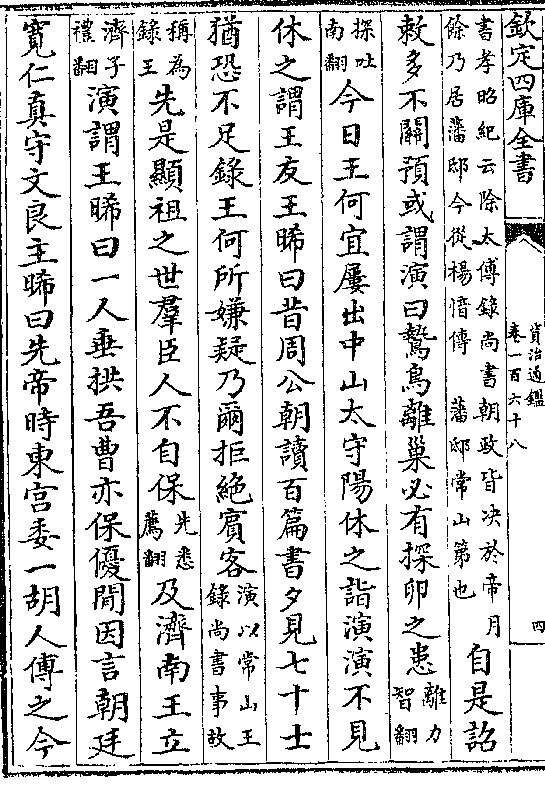 欽定四庫全書
資治通鑑
卷一百六十八
四
書孝昭紀云除太傅錄尚書朝政皆決於帝月
餘乃居藩邸今從楊愔傳　藩邸常山第也
自是詔
敕多不關預或謂演曰鷙鳥離巢必有探卵之患
離力
智翻
探吐
南翻
今日王何宜屢出中山太守陽休之詣演演不見
休之謂王友王晞曰昔周公朝讀百篇書夕見七十士
猶恐不足錄王何所嫌疑乃爾拒絶賓客
演以常山王
錄尚書事故
稱為
錄王
先是顯祖之世羣臣人不自保
先悉
薦翻
及濟南王立
濟子
禮翻
演謂王晞曰一人垂拱吾曹亦保優閒因言朝廷
寛仁真守文良主晞曰先帝時東宫委一胡人傅之今